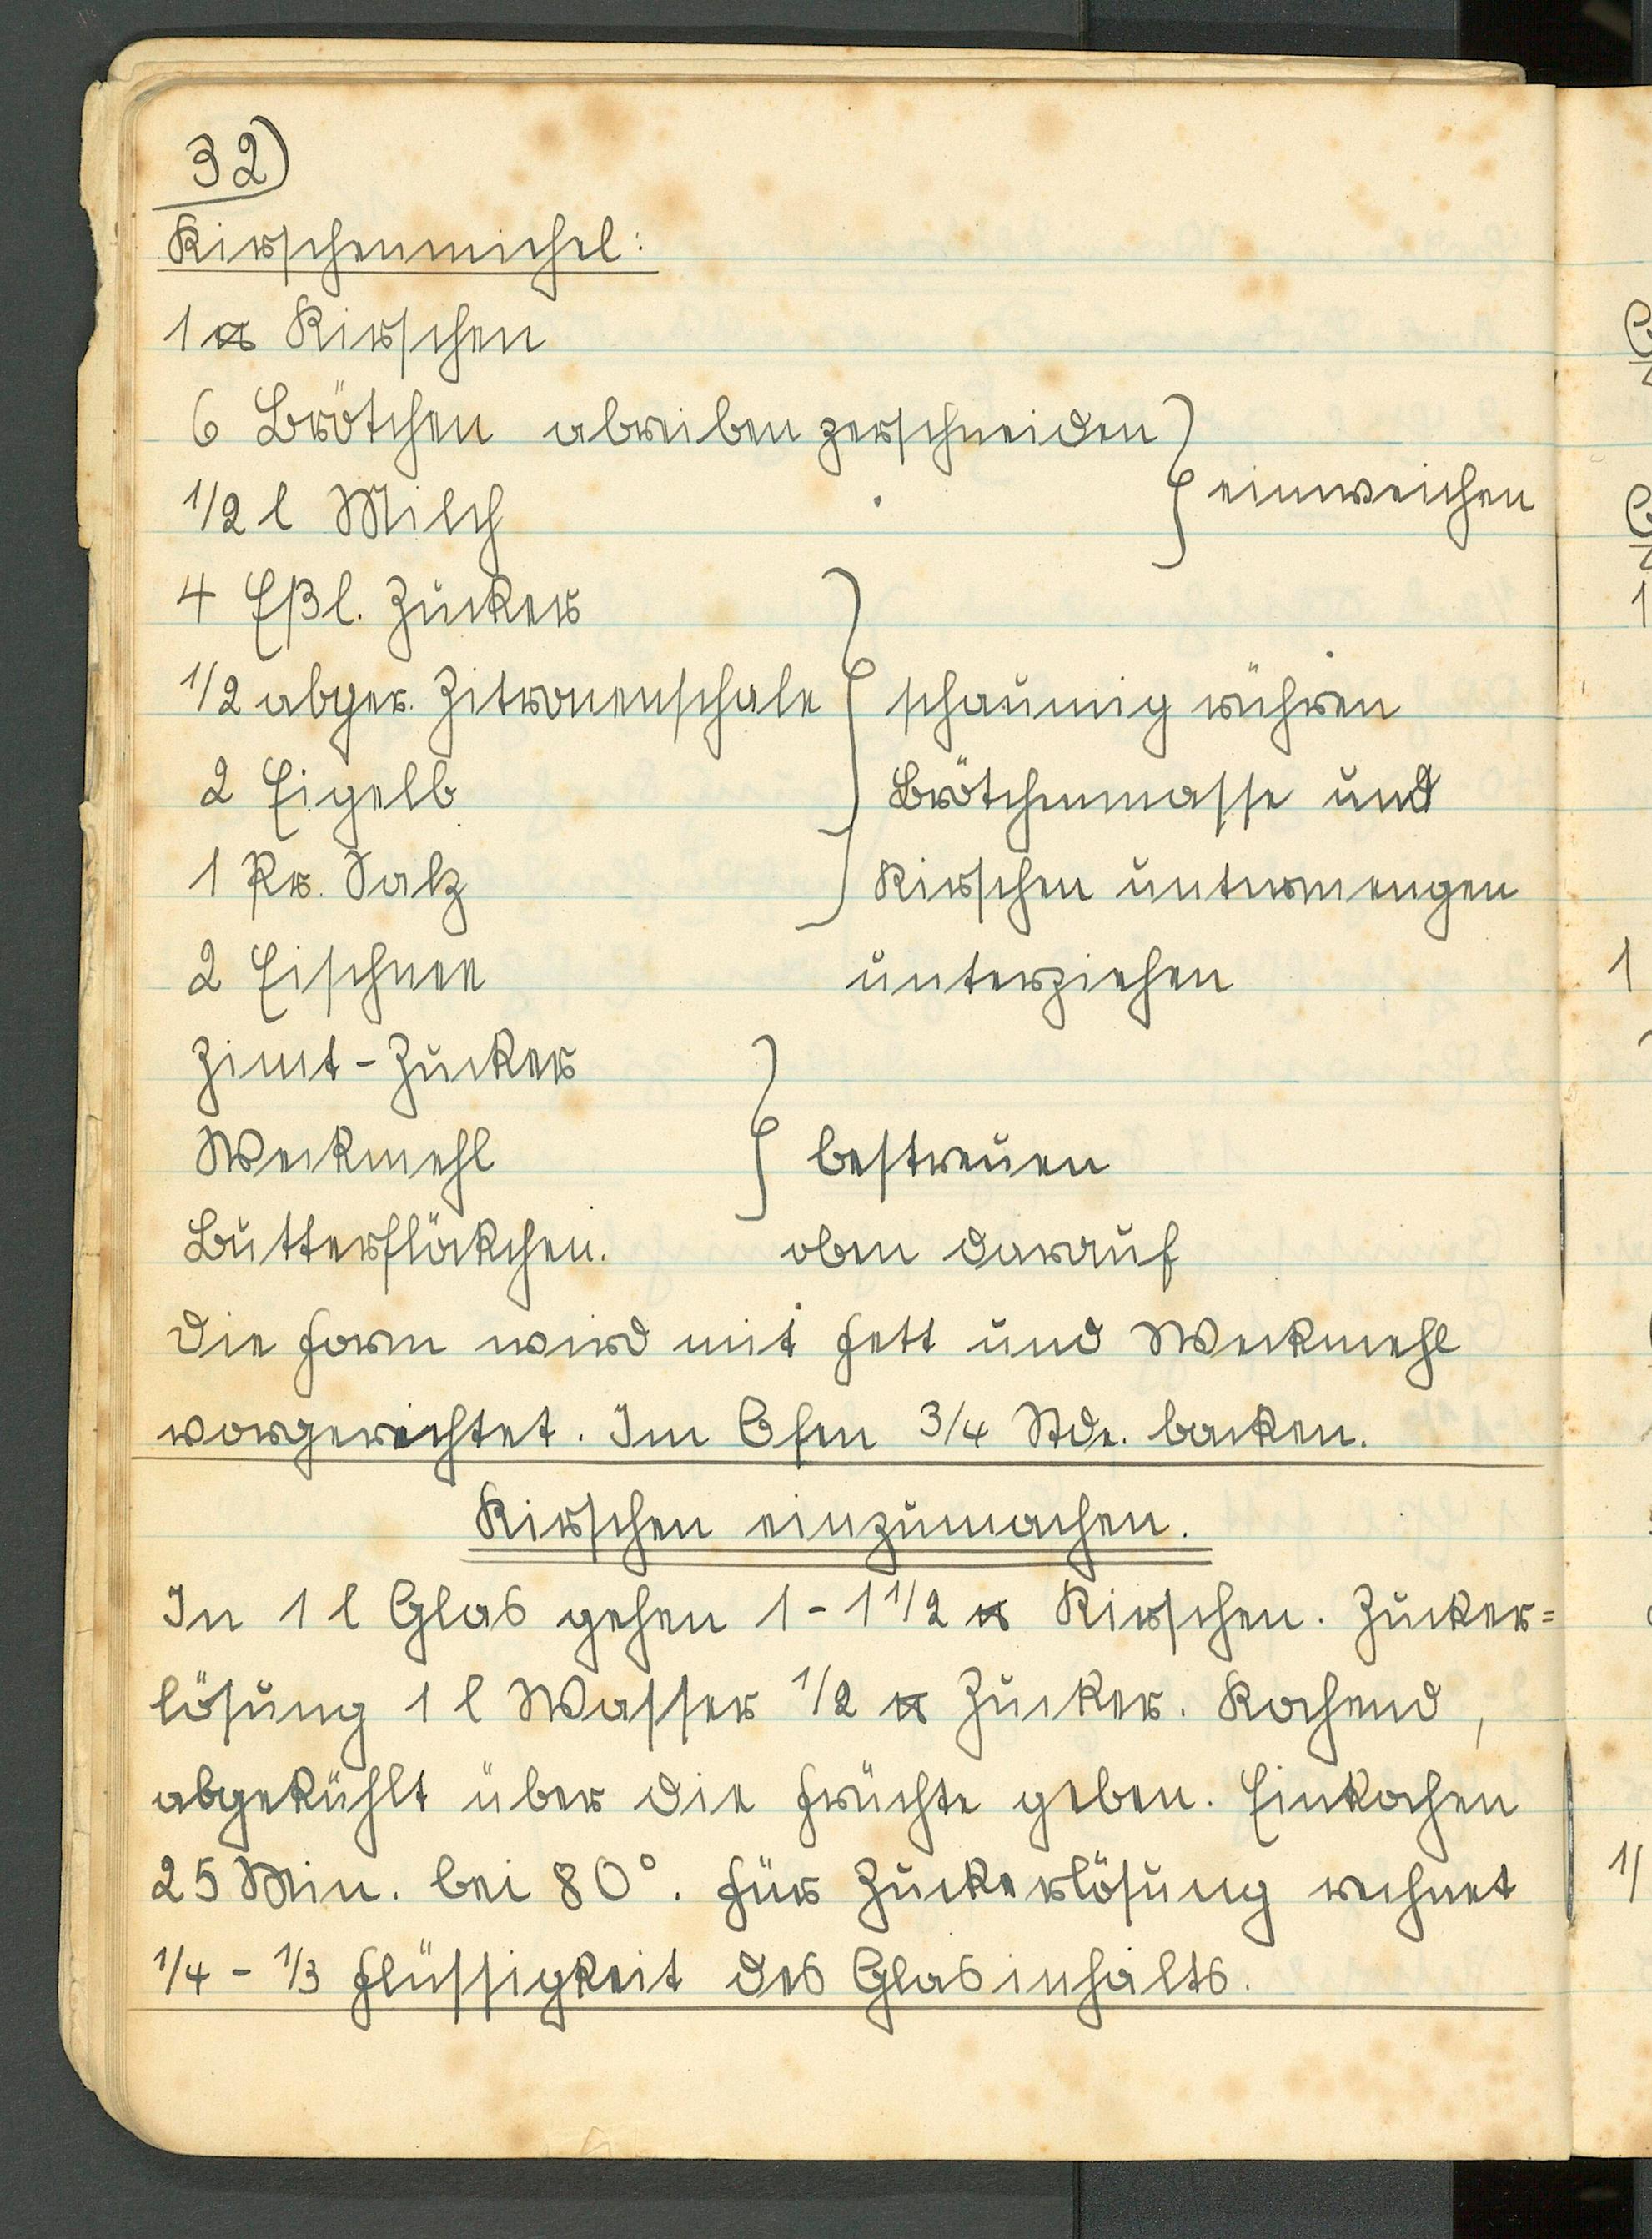 32)
Kirschenmichel:
1 ℔ Kirschen
6 Brötchen abreiben zerschneiden } einweichen
1/2 l Milch
4 Eßl. Zucker
1/2 abger. Zitronenschale } schaumig rühren
2 Eigelb Brötchenmasse und
1 Pr. Salz Kirschen untermengen
2 Eischnee unterziehen
Zimt-Zucker
Weckmehl } bestreuen
Butterflöckchen. oben darauf
Die Form wird mit Fett und Weckmehl
vorgerichtet. Im Ofen 3/4 Stde. backen.
Kirschen einzumachen.
In 1 l Glas gehen 1 - 1 1/2 ℔ Kirschen. Zucker=
lösung 1 l Wasser 1/2 ℔ Zucker. Kochend,
abgekühlt über die Früchte geben. Einkochen
25 Min. bei 80°. Für Zuckerlösung rechnet
1/4 - 1/3 Flüssigkeit des Glasinhalts.